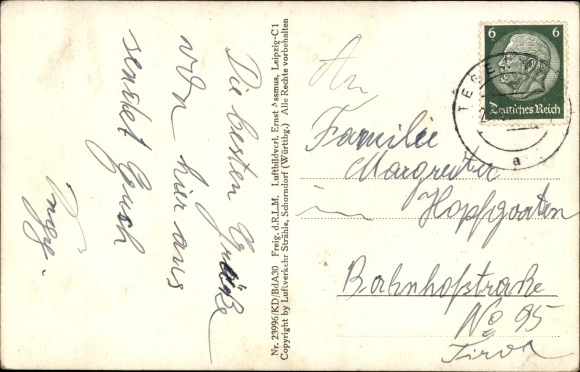 Die besten Grüße
von hier aus
sendet Euch
Nr. 23996/KD/BdA30 Freig. d.R.L.M. Luftbildverl. Ernst Assmus, Leipzig-C1
Copyright by Luftverkehr Strähle, Schorndorf (Württbg.) Alle Rechte vorbehalten
6 6
Deutsches Reich
a
An
Familie
Margreiter
in Hopfgarten
Bahnhofstraße
No 95
Tirol